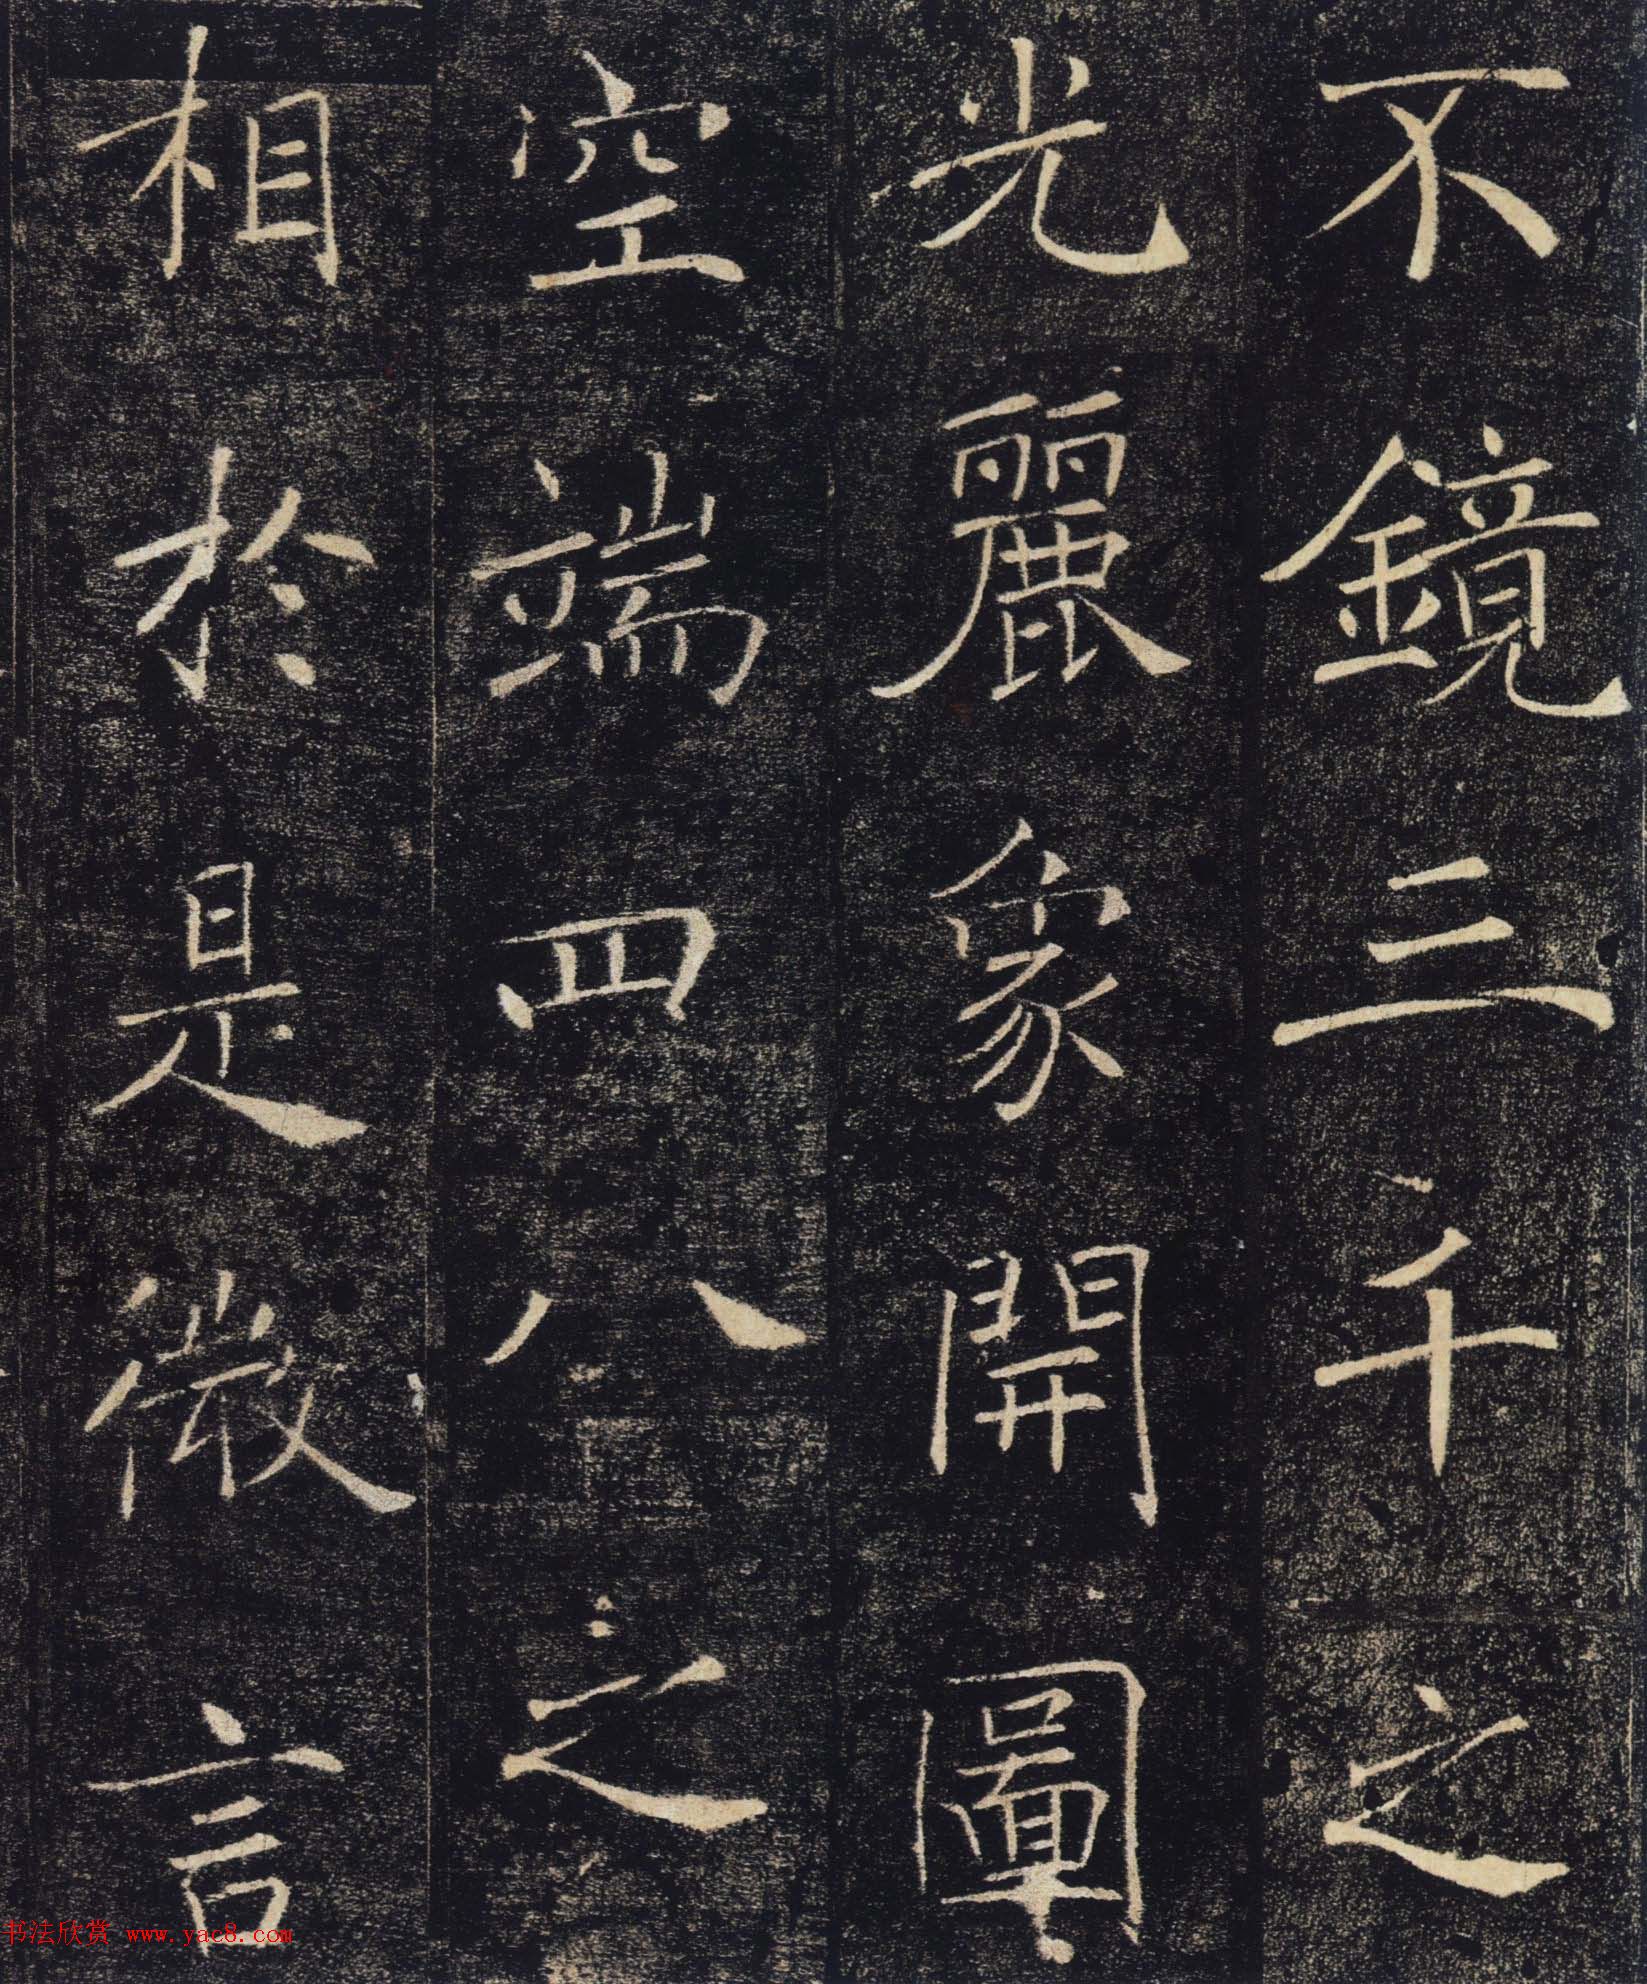 不鏡三千之
光麗象開圖
空端四八之
相於是微言
书法欣赏 www.yac8.com